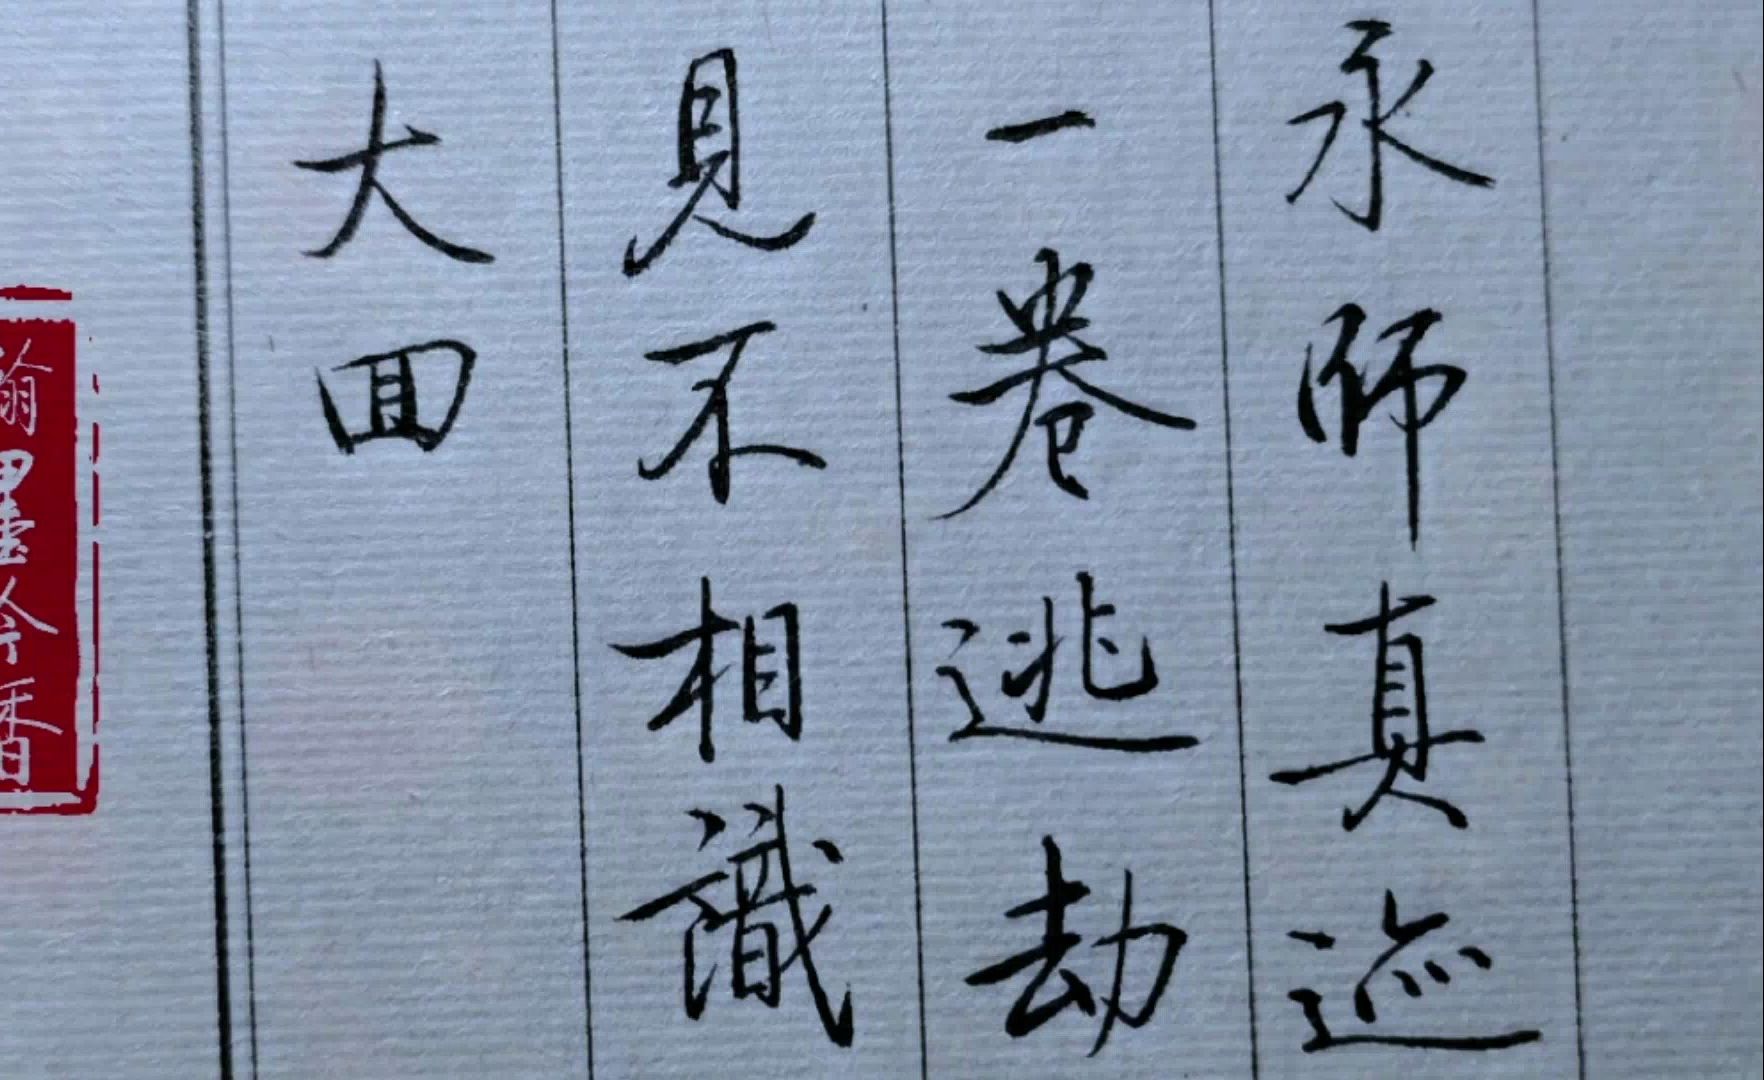 永師真迹
一卷逃劫
見不相識
大囬
翰墨
香